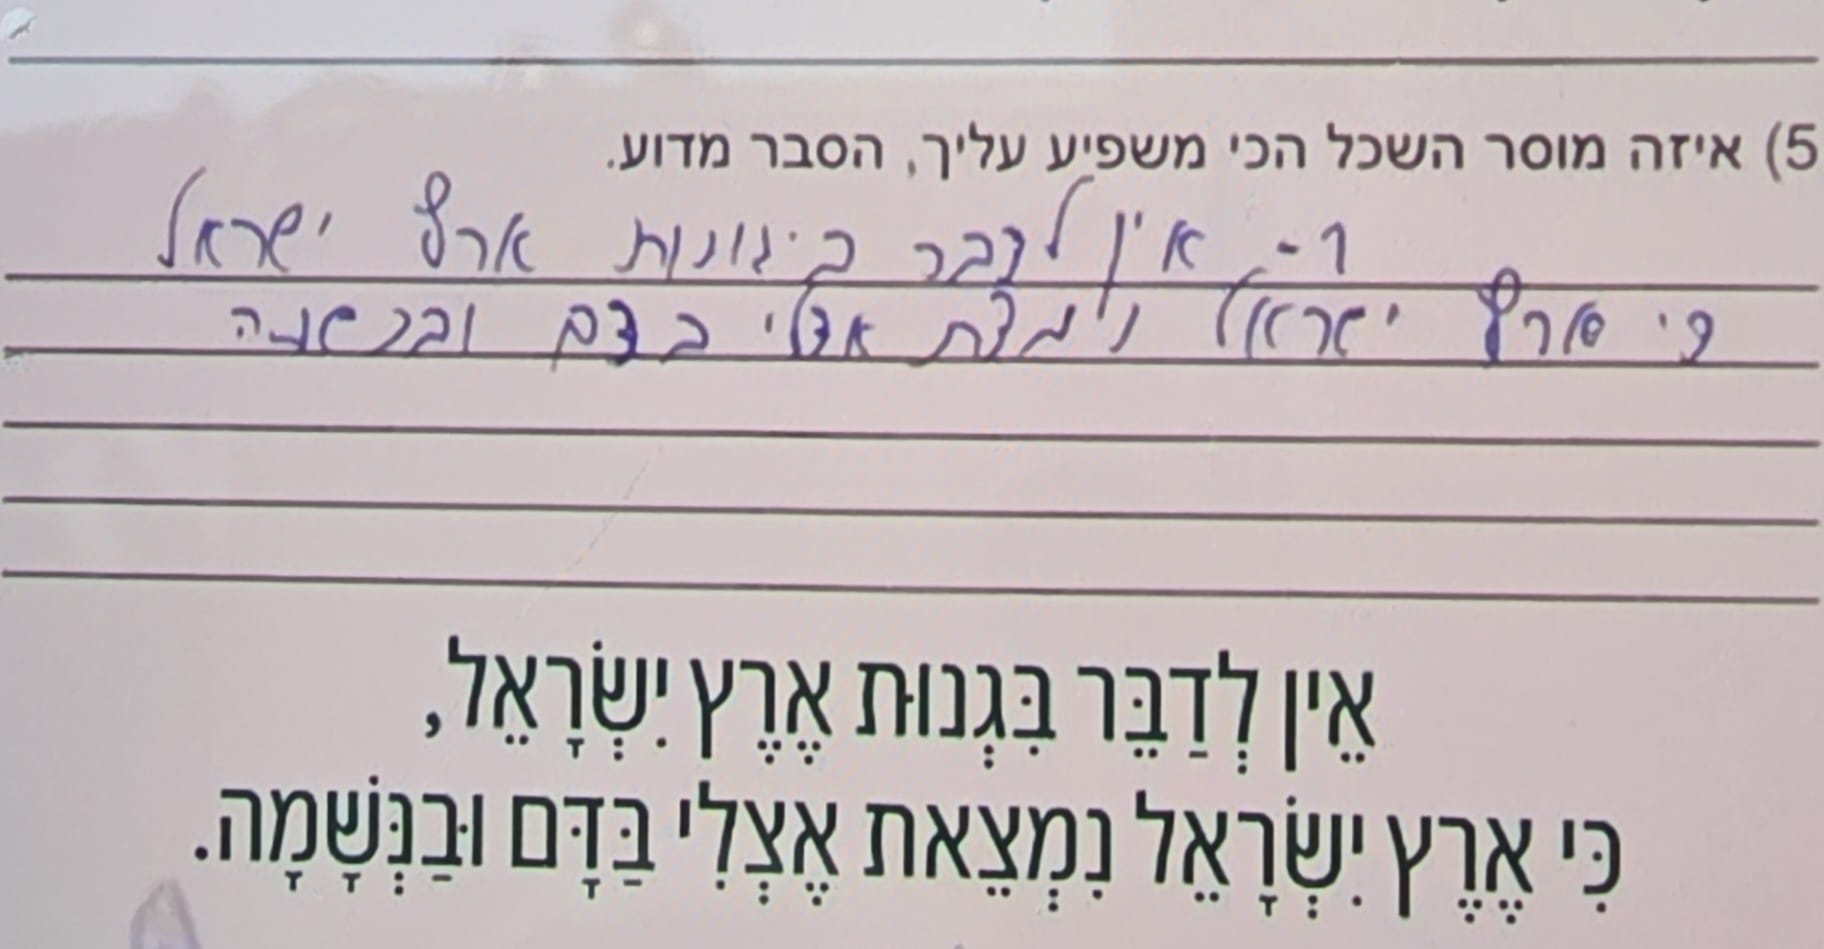 5) איזה מוסר השכל הכי משפיע עליך, הסבר מדוע.
1- אין לדבר ביגונות ארץ ישראל
כי ארץ ישראל נימצת אצלי בדם ובנשמה
אֵין לְדַבֵּר בִּגְנוּת אֶרֶץ יִשְׂרָאֵל,
כִּי אֶרֶץ יִשְׂרָאֵל נִמְצֵאת אֶצְלִי בַּדָּם וּבַנְּשָׁמָה.